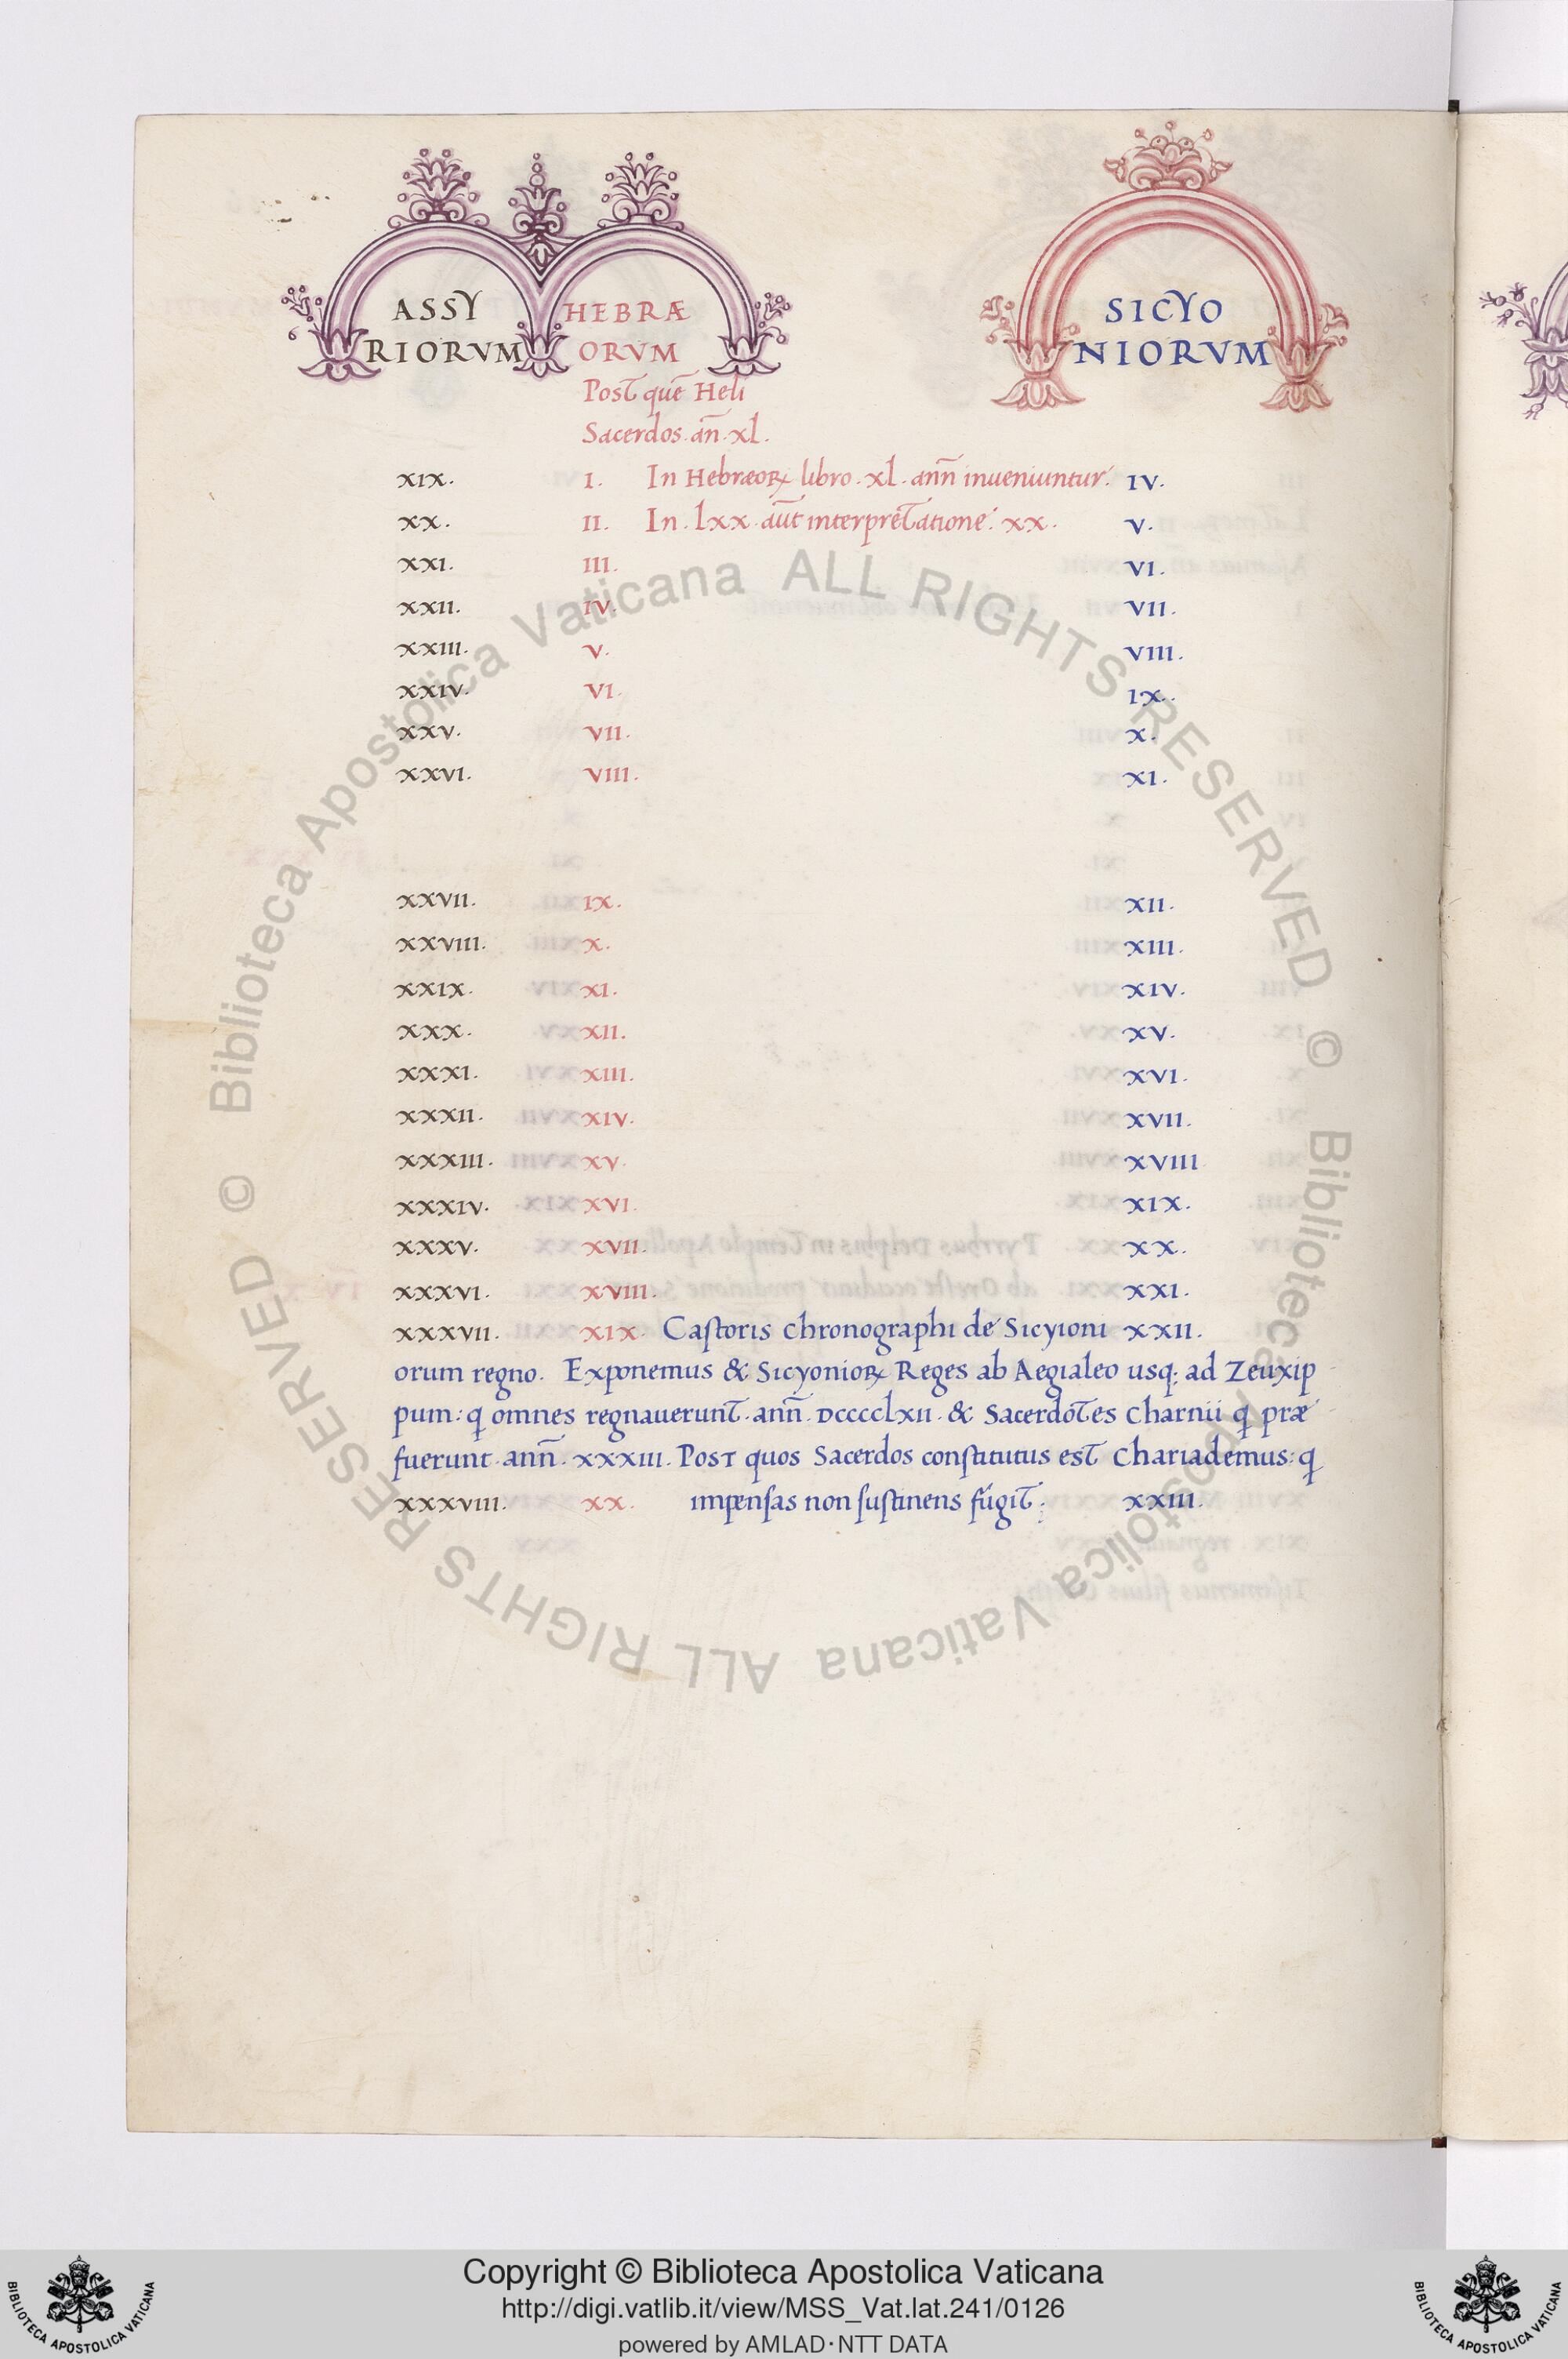 ASSY HEBRÆ SICYO
RIORVM ORVM NIORVM
Post quē Heli
Sacerdos. ān. xl.
XIX. I. In Hebræoꝝ libro. xl. anñ inueniuntur. IV.
XX. II. In. lxx. aūt interpretatione. xx. V.
XXI. III. VI.
XXII. IV. VII.
XXIII. V. VIII.
XXIV. VI. IX.
XXV. VII. X.
XXVI. VIII. XI.
XXVII. IX. XII.
XXVIII. X. XIII.
XXIX. XI. XIV.
XXX. XII. XV.
XXXI. XIII. XVI.
XXXII. XIV. XVII.
XXXIII. XV. XVIII
XXXIV. XVI. XIX.
XXXV. XVII. XX.
XXXVI. XVIII. XXI.
XXXVII. XIX. Castoris chronographi de Sicyioni XXII.
orum regno. Exponemus & Sicyonioꝝ Reges ab Aegialeo usq; ad Zeuxip
pum: q omnes regnauerunt. anñ. DCCCCLXII. & Sacerdotes Charnii q præ
fuerunt. anñ. XXXIII. Post quos Sacerdos constitutus est Chariademus: q
XXXVIII. XX. impensas non sustinens fúgit: XXIII.
© Biblioteca Apostolica Vaticana ALL RIGHTS RESERVED
© Biblioteca Apostolica Vaticana ALL RIGHTS RESERVED
Copyright © Biblioteca Apostolica Vaticana
http://digi.vatlib.it/view/MSS_Vat.lat.241/0126
powered by AMLAD·NTT DATA
BIBLIOTECA APOSTOLICA VATICANA
BIBLIOTECA APOSTOLICA VATICANA